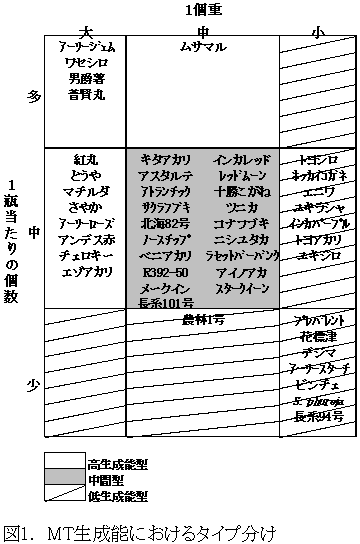 1個重
大 中 小
1瓶当たりの個数
多
アーリージェム
ワセシロ
男爵薯
普賢丸
ムサマル
中
紅丸
とうや
マチルダ
さやか
アーリーローズ
アンデス赤
チェロキー
エゾアカリ
キタアカリ
アスタルテ
アトランチック
サクラフブキ
北海82号
ノースチップ
ベニアカリ
R392-50
メークイン
長系101号
インカレッド
レッドムーン
十勝こがね
ツニカ
コナフブキ
ニシユタカ
ラセットバーバンク
アイノアカ
スタークイーン
トヨシロ
ホッカイコガネ
エニワ
ユキラシャ
インカパープル
トコアカリ
ユキジロ
少
農林1号
花標津
デジマ
アーリースターチ
ビンチェ
長系94号
高生成能型
中間型
低生成能型
図1. MT生成能におけるタイプ分け